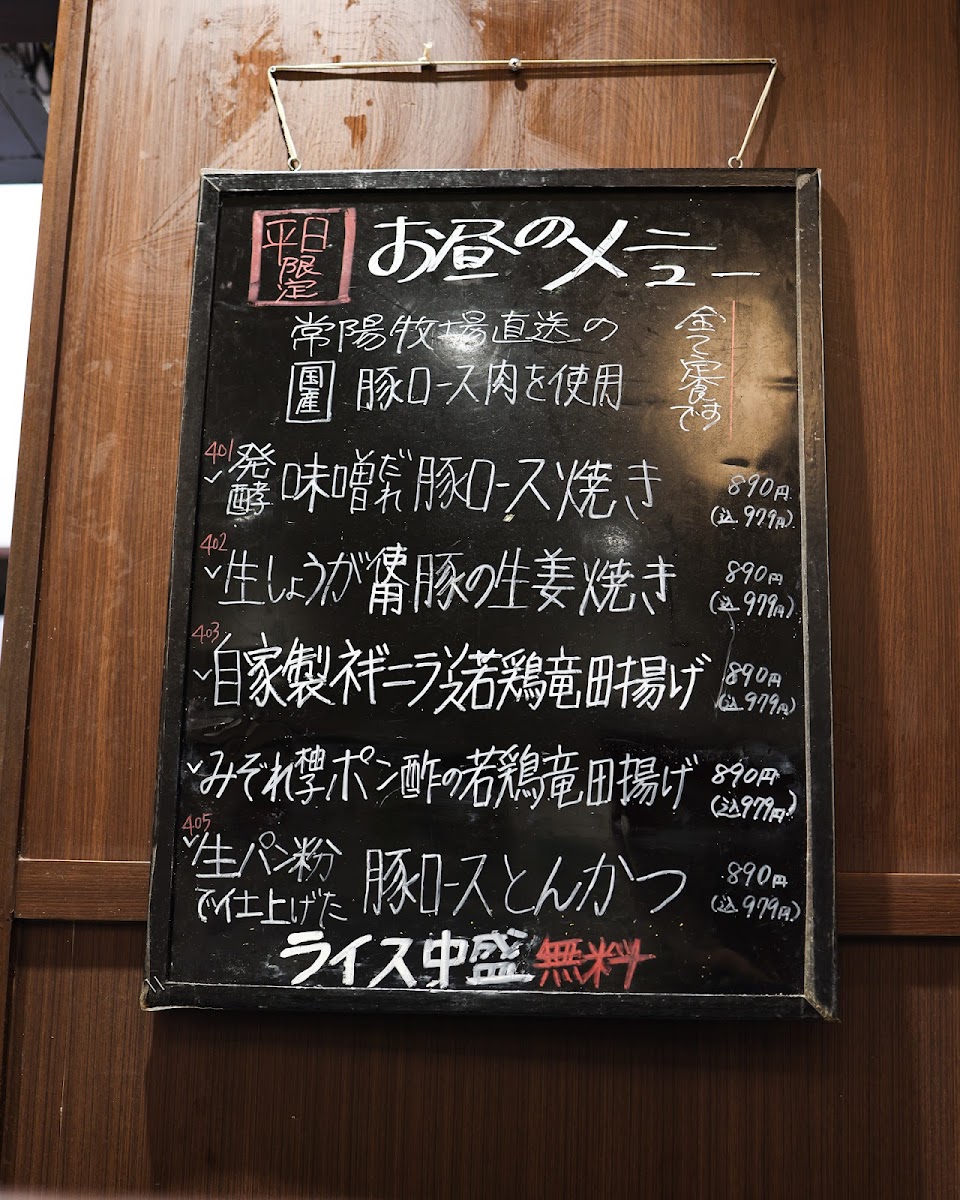 平日
限定
お昼のメニュー
常陽牧場直送の
国産 豚ロース肉を使用
全て定食です
401
発酵味噌だれ豚ロース焼き 890円
(込979円)
402
生しょうが使用豚の生姜焼き 890円
(込979円)
403
自家製ネギニラソース若鶏竜田揚げ 890円
(込979円)
みぞれ柚子ポン酢の若鶏竜田揚げ 890円
(込979円)
405
生パン粉で仕上げた 豚ロースとんかつ 890円
(込979円)
ライス中盛無料